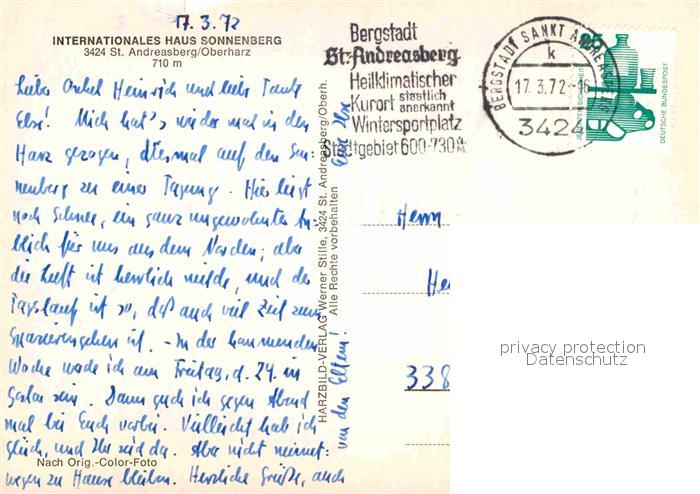 17.3.72
INTERNATIONALES HAUS SONNENBERG
3424 St. Andreasberg/Oberharz
710 m
Liebe Onkel Heinrich und liebe Tante
Else! Mich hat's wieder mal in den
Harz gezogen, diesmal auf den Son-
nenberg zu einer Tagung. Hier liegt
noch Schnee, ein ganz ungewohnter An-
blick für uns aus dem Norden; aber
die Luft ist herrlich milde, und der
Tagslauf ist so, daß auch viel Zeit zum
Spazierengehen ist. - In der kommenden
Woche werde ich am Freitag, d. 24. in
Goslar sein. Dann guck ich gegen Abend
mal bei Euch vorbei. Vielleicht hab ich
Glück, und Ihr seid da. Aber nicht meinet-
wegen zu Hause bleiben. Herzliche Grüße, auch
von den Eltern!
Eure Ilse
Nach Orig.-Color-Foto
HARZBILD-VERLAG Werner Stille, 3424 St. Andreasberg/Oberh.
Alle Rechte vorbehalten
Bergstadt
St. Andreasberg
Heilklimatischer
Kurort staatlich anerkannt
Wintersportplatz
Stadtgebiet 600-730m
BERGSTADT SANKT ANDREASBERG
k
17.3.72-16
3424
25
DEUTSCHE BUNDESPOST
Herrn
He
338
privacy protection
Datenschutz